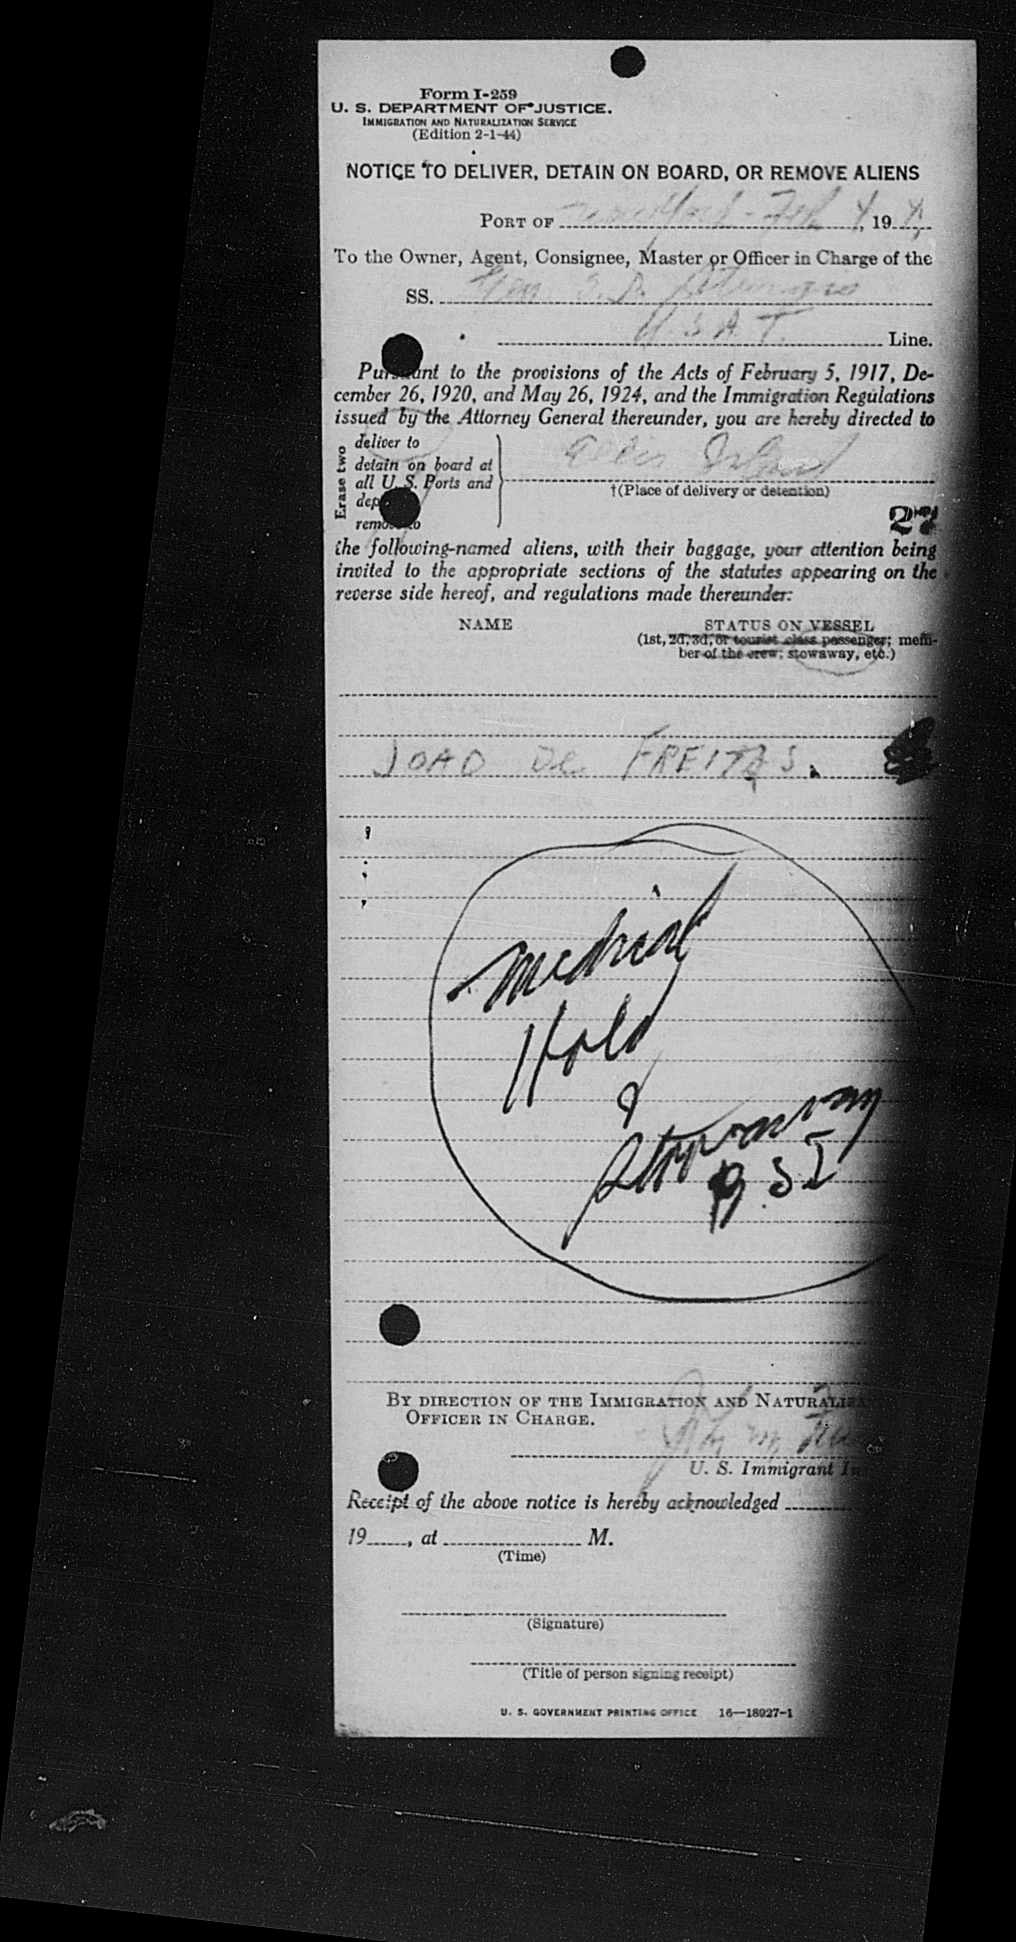 Form I-259
U. S. DEPARTMENT OF JUSTICE.
IMMIGRATION AND NATURALIZATION SERVICE
(Edition 2-1-44)
NOTICE TO DELIVER, DETAIN ON BOARD, OR REMOVE ALIENS
PORT OF New York - Feb 4, 19 4
To the Owner, Agent, Consignee, Master or Officer in Charge of the
SS. Gen S.D. Sturgis
U.S.A.T. Line.
Pursuant to the provisions of the Acts of February 5, 1917, De-
cember 26, 1920, and May 26, 1924, and the Immigration Regulations
issued by the Attorney General thereunder, you are hereby directed to
Erase two
deliver to
detain on board at
all U. S. Ports and
dep
remove to
Ellis Island
†(Place of delivery or detention)
27
the following-named aliens, with their baggage, your attention being
invited to the appropriate sections of the statutes appearing on the
reverse side hereof, and regulations made thereunder:
NAME STATUS ON VESSEL
(1st, 2d, 3d, or tourist class passenger; mem-
ber of the crew; stowaway, etc.)
JOAO De FREITAS.
Medical
Hold
&
Stowaway
B.S.I
BY DIRECTION OF THE IMMIGRATION AND NATURALIZA
OFFICER IN CHARGE.
U. S. Immigrant In
Receipt of the above notice is hereby acknowledged
19, at M.
(Time)
(Signature)
(Title of person signing receipt)
U. S. GOVERNMENT PRINTING OFFICE 16—18927-1